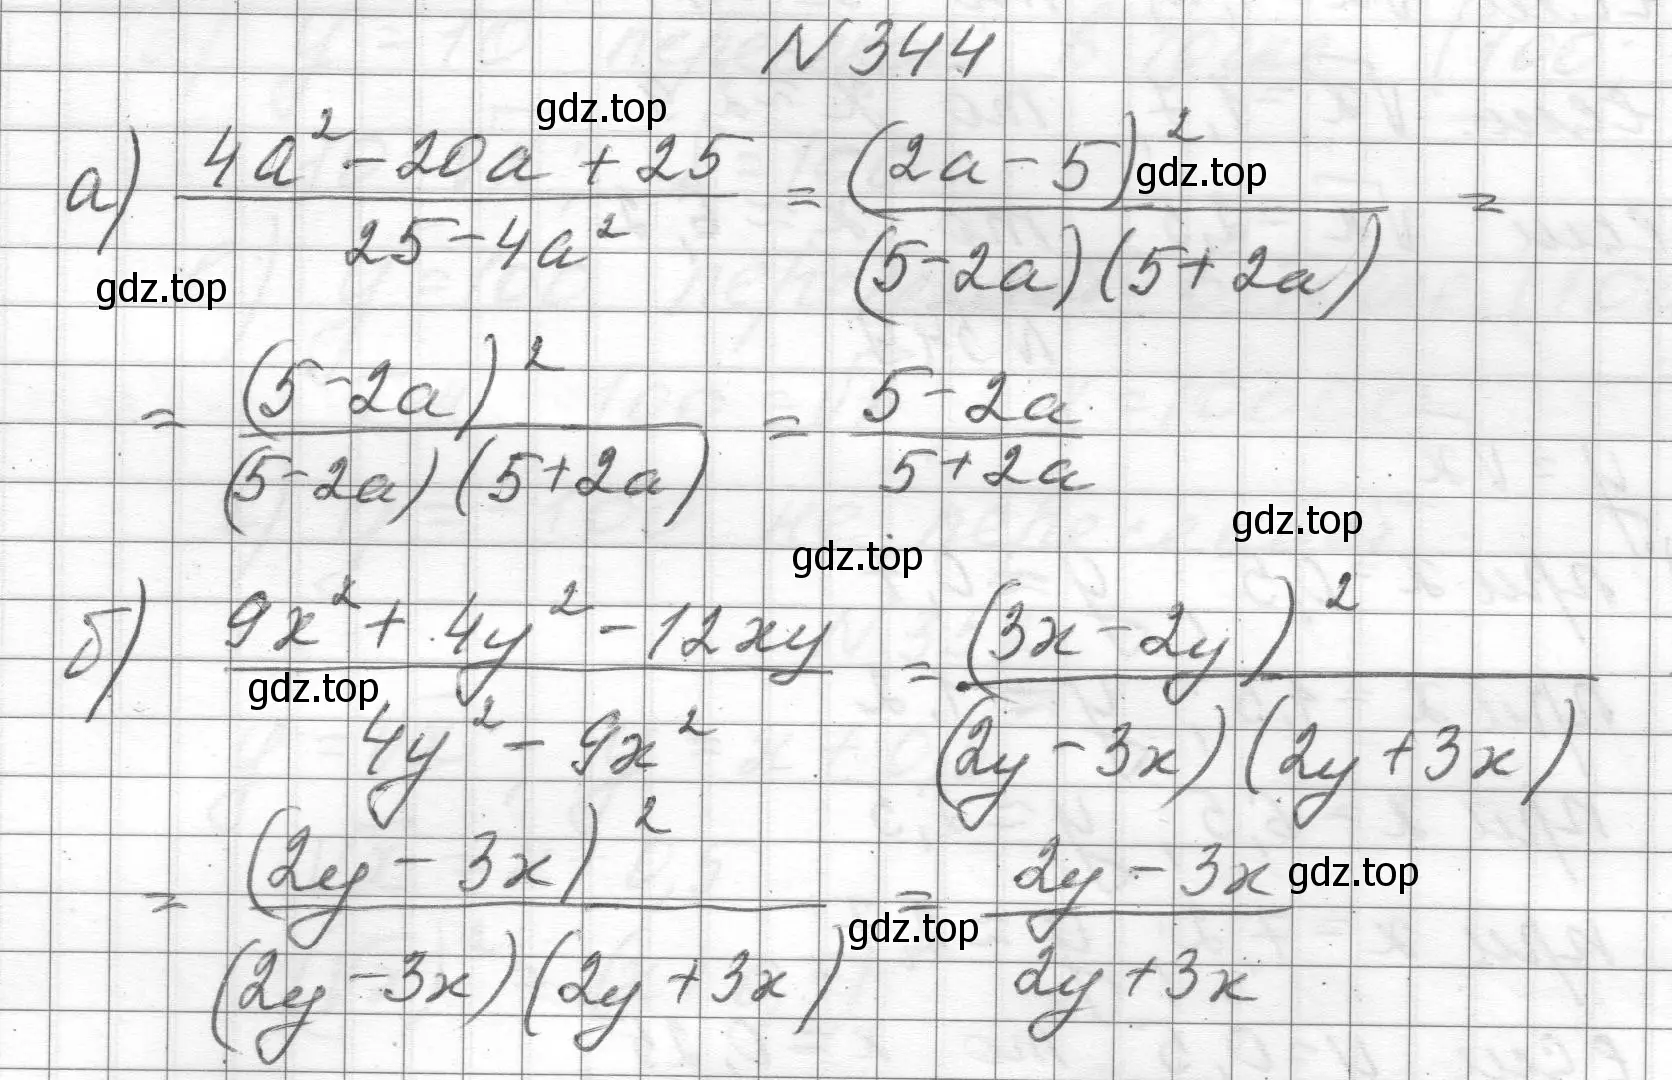 N 344
gdz.top
а) (4a² - 20a + 25)/(25 - 4a²) = (2a - 5)²/((5 - 2a)(5 + 2a)) =
gdz.top
gdz.top
= (5 - 2a)²/((5 - 2a)(5 + 2a)) = (5 - 2a)/(5 + 2a)
gdz.top
gdz.top
б) (9x² + 4y² - 12xy)/(4y² - 9x²) = (3x - 2y)²/((2y - 3x)(2y + 3x))
gdz.top
= (2y - 3x)²/((2y - 3x)(2y + 3x)) = (2y - 3x)/(2y + 3x)
gdz.top
gdz.top